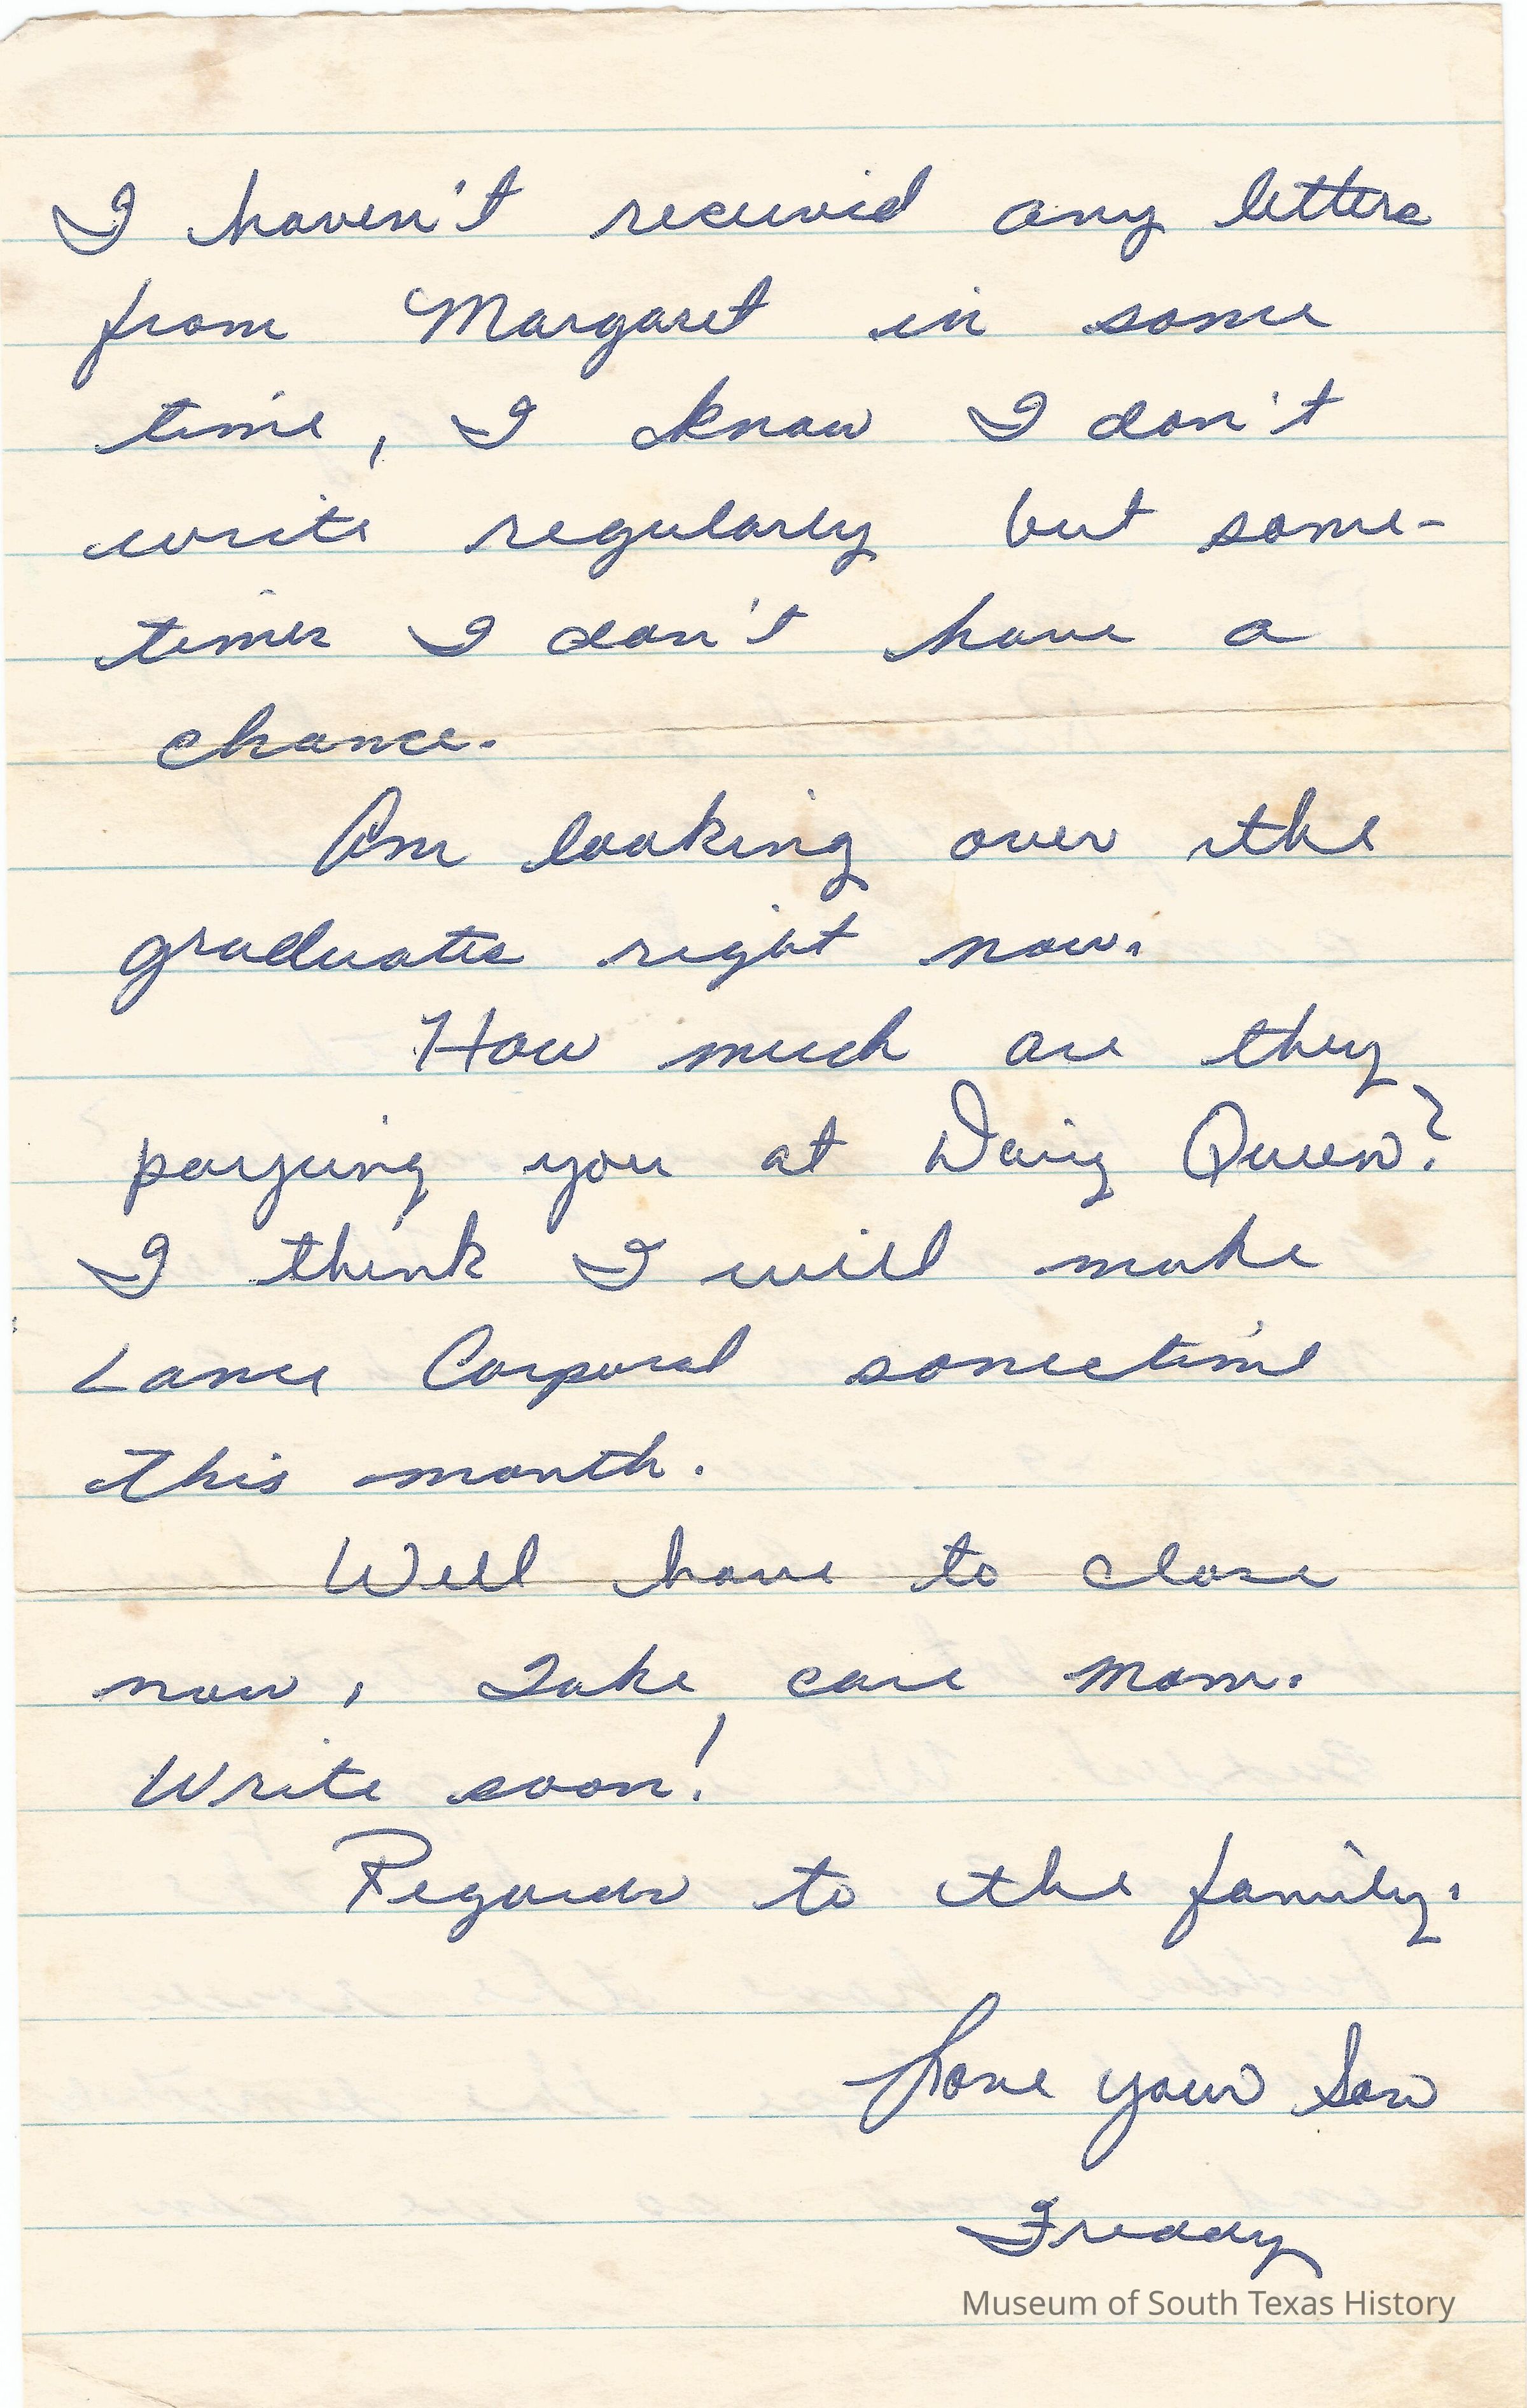 I haven't received any letters
from Margaret in some
time, I know I don't
write regularly but some-
times I don't have a
chance.
Am looking over the
graduate right now.
How much are they
paying you at Dairy Queen?
I think I will make
Lance Corporal sometime
this month.
Well have to close
now, Take care Mom.
Write soon!
Regards to the family.
Love your Son
Freddy
Museum of South Texas History